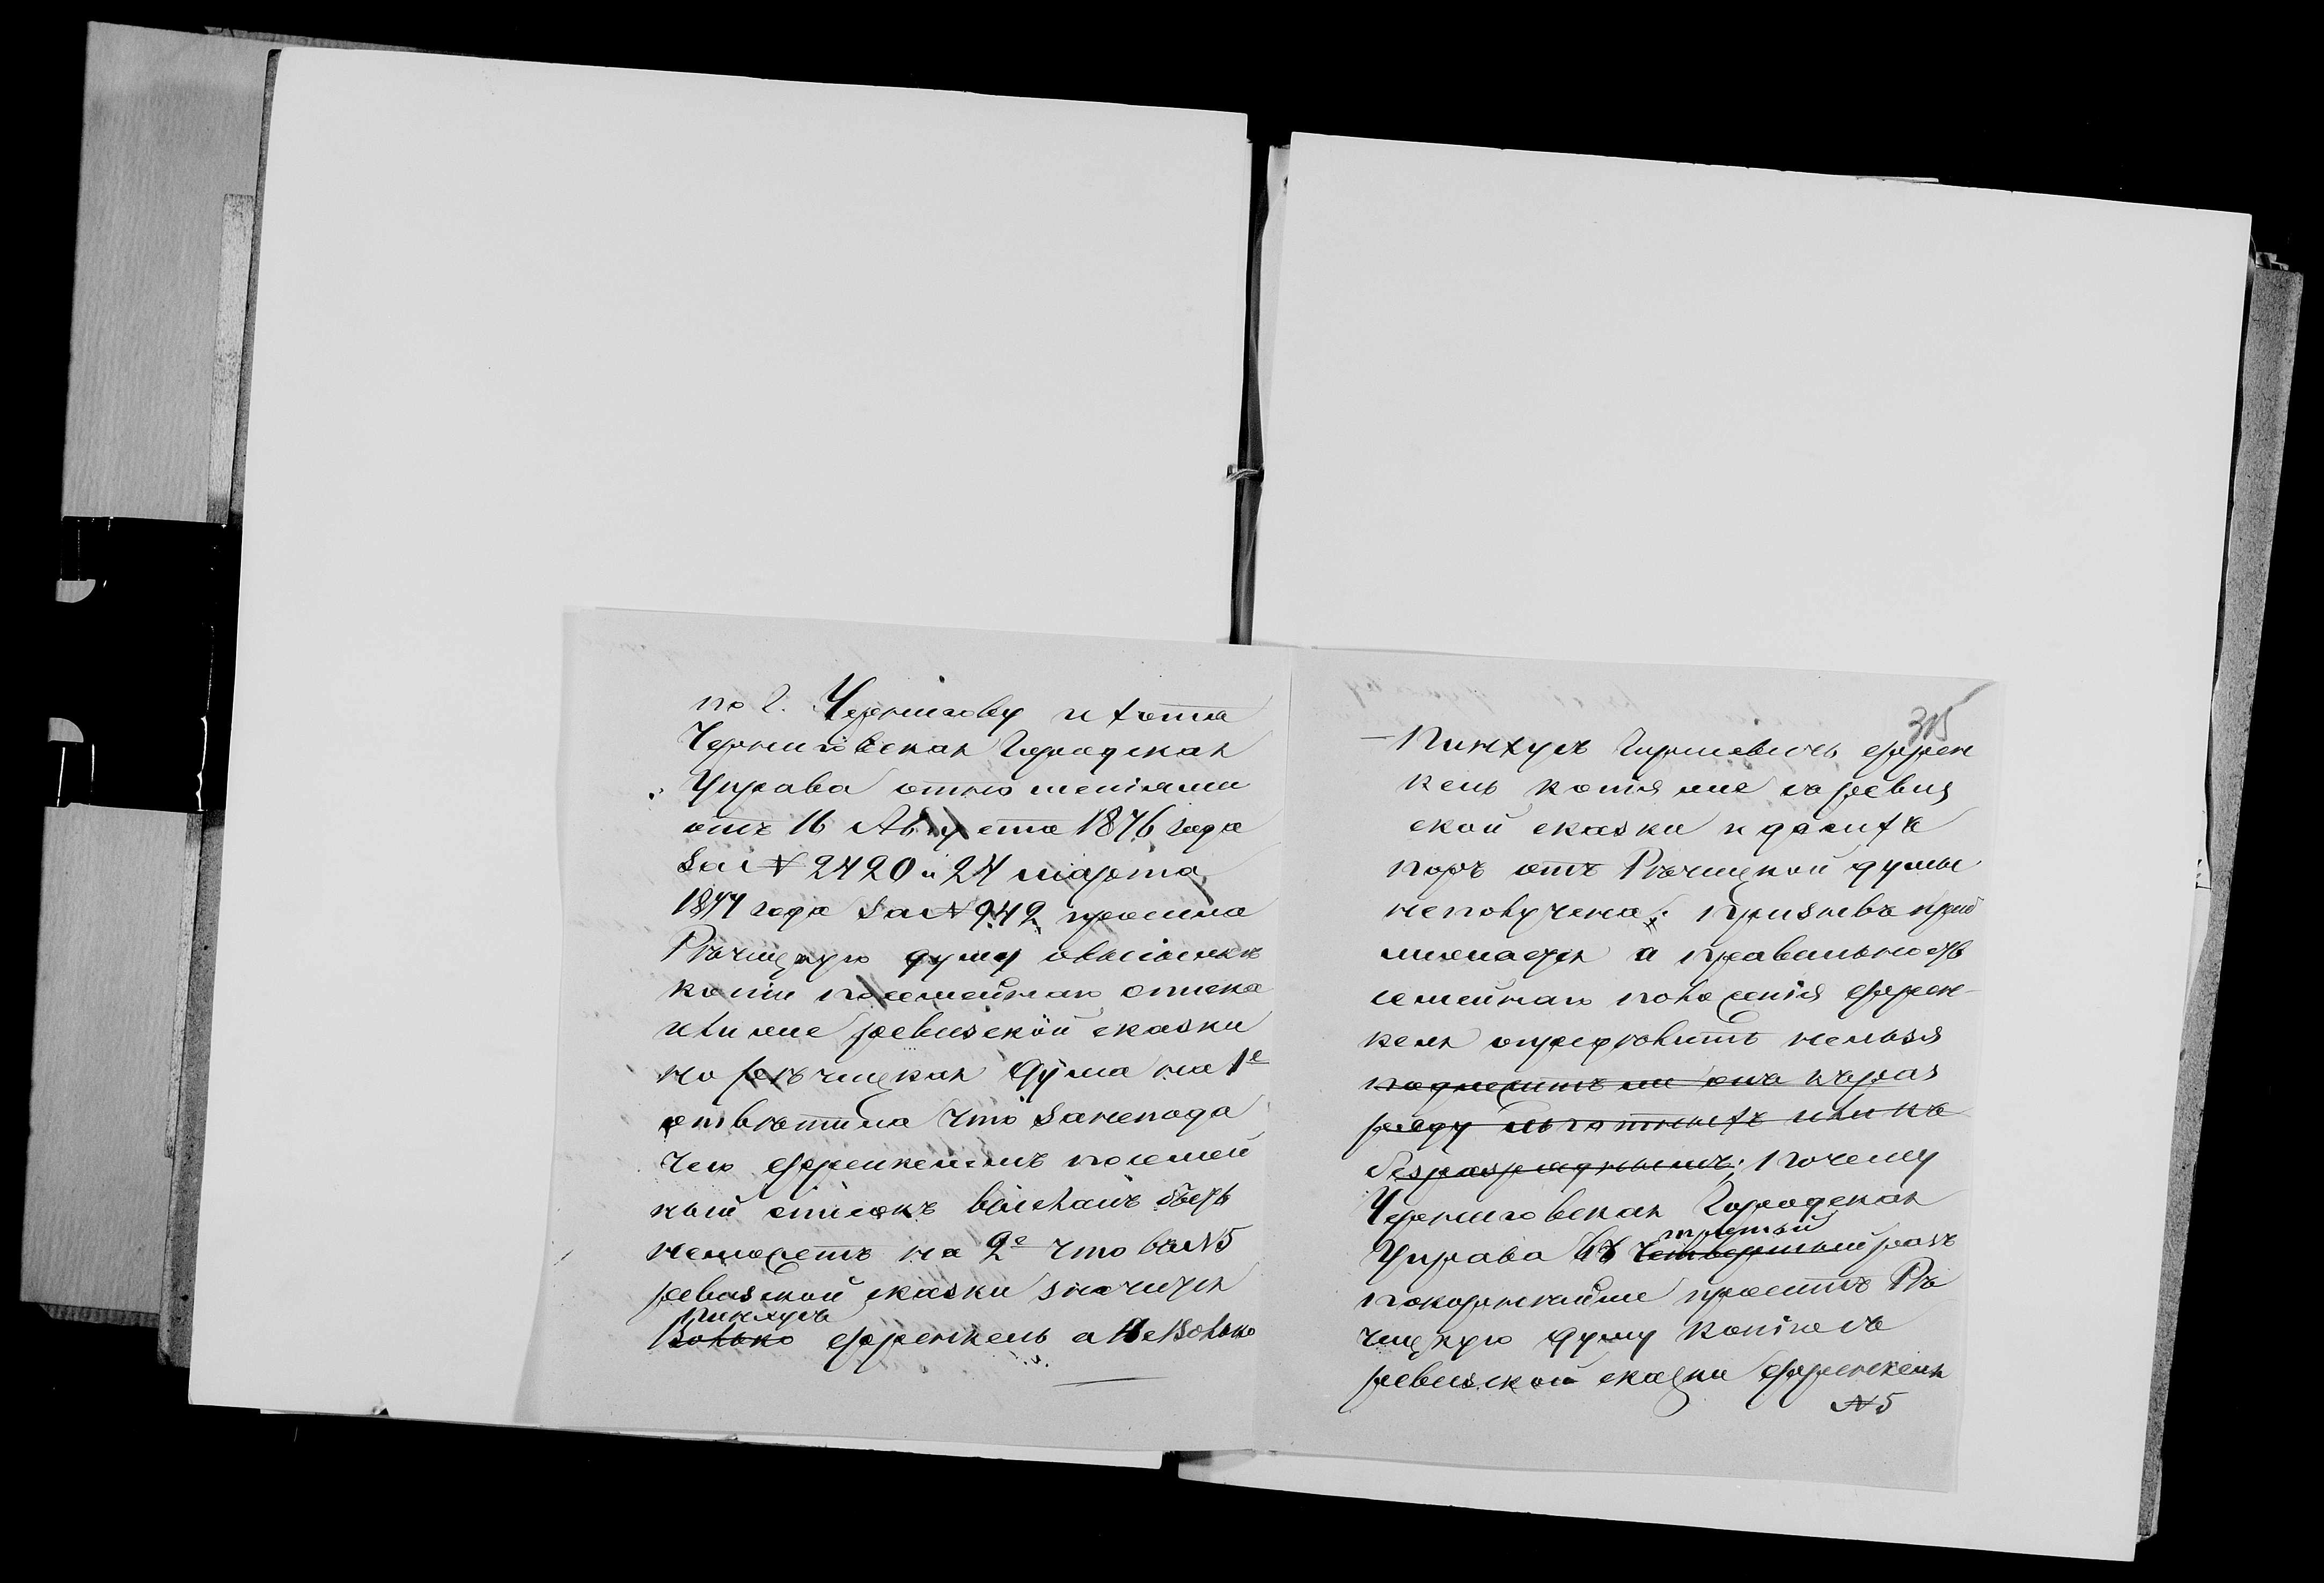 по г. Чернигову и хотя
Черниговская Городская
Управа отношениями
отъ 16 Августа 1876 года
за № 2420 и 24 марта
1877 года за № 942 просила
Рѣчицкую думу овысылкѣ
копіи посемейнаго списка
или же ревизской сказки
но рѣчицкая дума на 1е
отвѣтила что занепода
чею Френкелемъ посемей
ный списокъ высланъ быть
неможетъ на 2е что въ №5
ревизской сказки значится
Пинхусъ
Волько Френкель а не Волько
315
— Пинхусъ Гиршевичъ Френ
кель копія же съ ревиз
ской сказки и до сихъ
поръ отъ Рѣчицкой думы
неполучена; Призывъ приб
лижается а правильность
семейнаго положенія Френ-
келя опредѣлить нельзя
подлежитъ ли онъ къ раз
ряду льготныхъ или къ
безразряднымъ; почему
Черниговская Городская
третій
Управа въ четвертый разъ
покорнѣйше проситъ Рѣ
чицкую думу копію съ
ревизской сказки Френкеля
№ 5